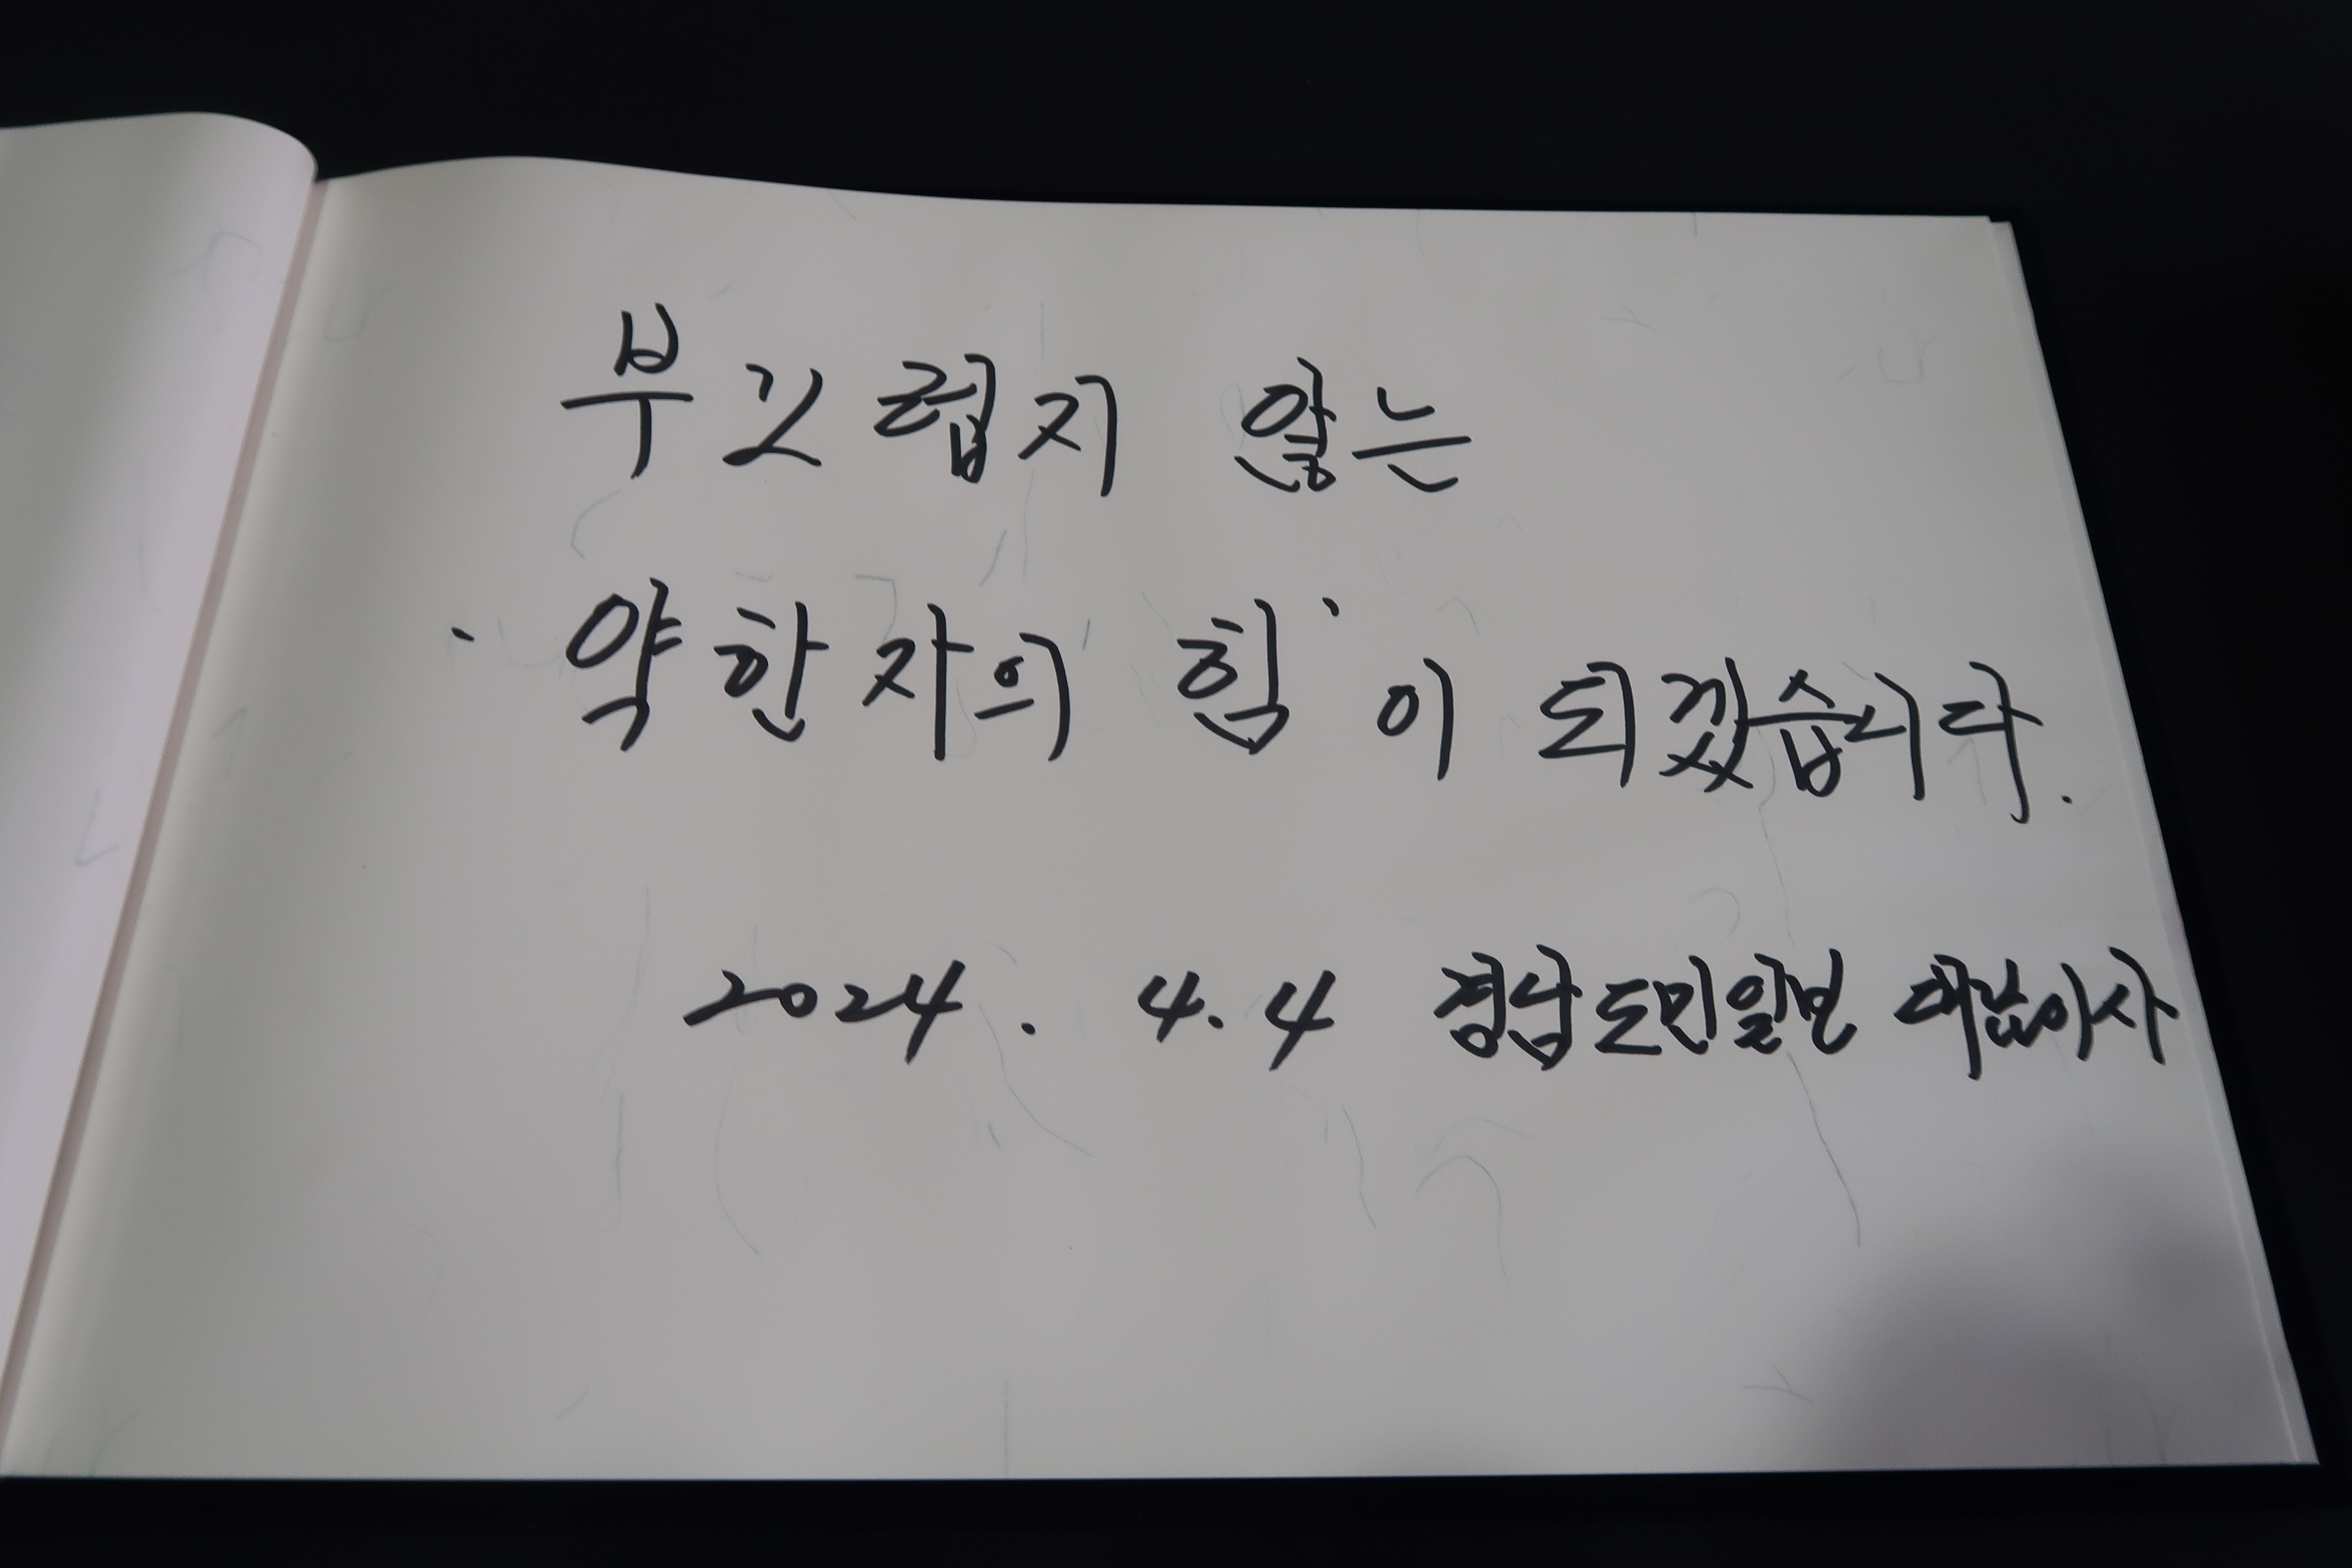 부끄럽지 않는
'약한자의 힘'이 되겠습니다.
2024. 4.4 경남도민일보 대표이사